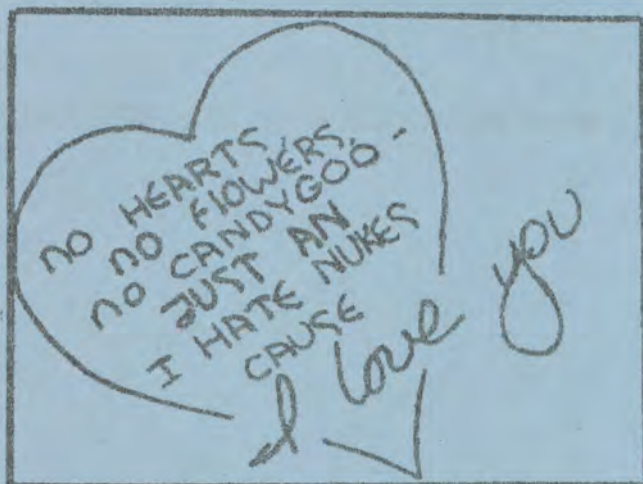 no HEARTS,
no FlOWERS,
no CANDYGOO -
JUST AN
I HATE NUKES
CAUSE
I love you